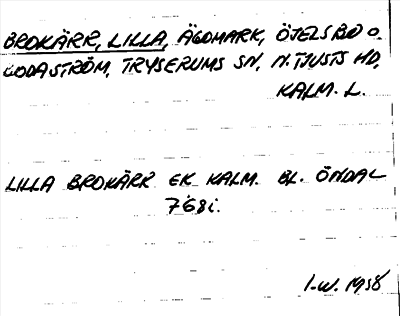 BROKÄRR, LILLA, ÄGOMARK, ÖJELSBO O.
GODASTRÖM, TRYSERUMS SN, N. TJUSTS HD,
KALM. L.
LILLA BROKÄRR EK KALM. BL. ÖNDAL
7 6 8 i.
I.W. 1958